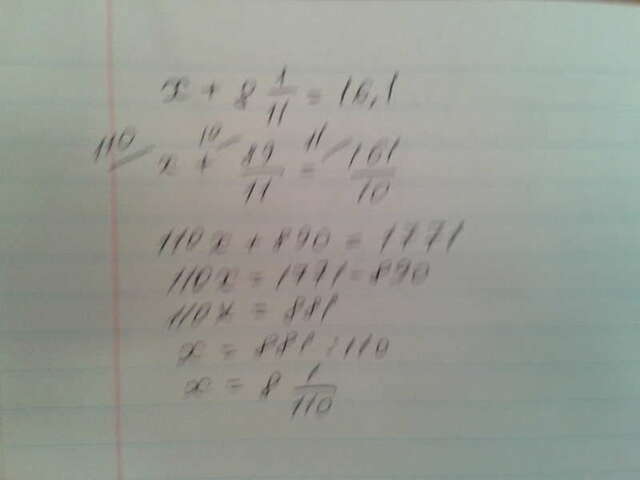 x + 8 1/11 = 16,1
110/ x + 10/ 89/11 = 11/ 161/10
110x + 890 = 1771
110x = 1771 - 890
110x = 881
x = 881 : 110
x = 8 1/110